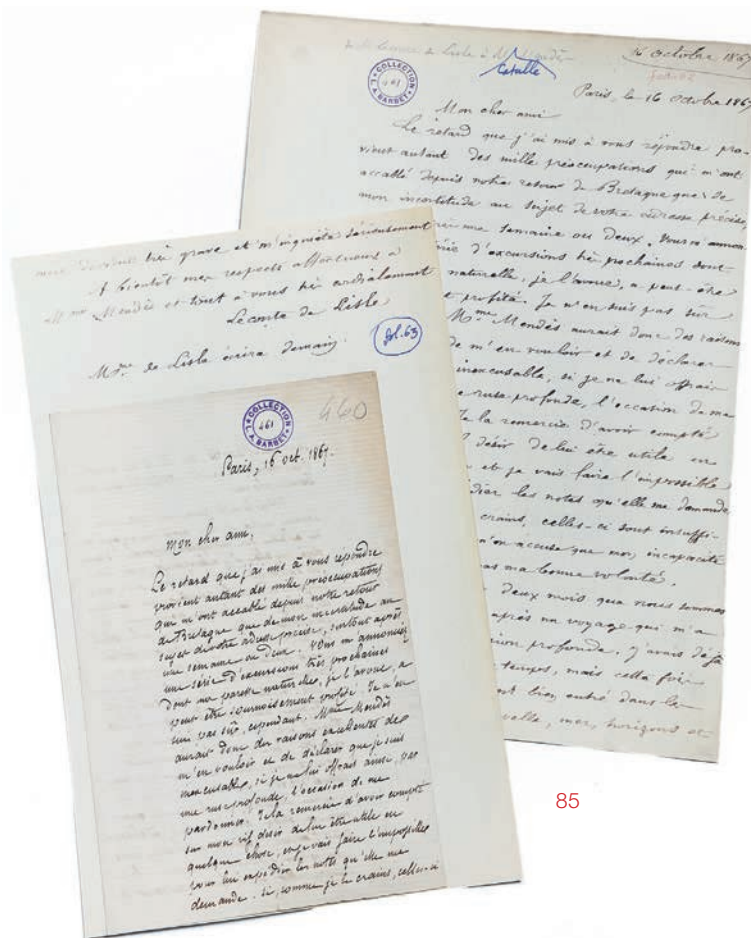 COLLECTION
L. A. BARBET
461
Catulle
16 octobre 1867
Paris, le 16 octobre 1867
Mon cher ami
Le retard que j'ai mis à vous répondre pro-
vient autant des mille préoccupations qui m'ont
accablé depuis notre retour de Bretagne que de
mon incertitude au sujet de votre adresse précise,
une semaine ou deux. Vous m'annon
d'excursions très prochaines dont
naturelle, je l'avoue, a peut-être
profité. Je n'en suis pas sûr
Mme Mendès aurait donc des raisons
de m'en vouloir et de déclarer
inexcusable, si je ne lui offrais
ruse profonde, l'occasion de me
la remercie d'avoir compté
désir de lui être utile en
et je vais faire l'impossible
les notes qu'elle me demande
crains, celles-ci sont insuffi-
n'en accuse que mon incapacité
pas ma bonne volonté.
deux mois que nous sommes
après un voyage qui m'a
profonde. J'avais déjà
temps, mais cette fois
bien entré dans le
mer, horizons et
très grave et m'inquiète sérieusement
A bientôt mes respects affectueux à
Mme Mendès et tout à vous très cordialement
Leconte de Lisle
Mme de Lisle écrira demain.
fol. 63
COLLECTION
L. A. BARBET
461
460
Paris, 16 oct. 1867.
Mon cher ami,
Le retard que j'ai mis à vous répondre
provient autant des mille préoccupations
qui m'ont accablé depuis notre retour
de Bretagne que de mon incertitude au
sujet de votre adresse précise, surtout après
une semaine ou deux. Vous m'annonciez
une série d'excursions très prochaines
dont ma paresse naturelle, je l'avoue, a
peut-être sournoisement profité. Je n'en
suis pas sûr, cependant. Mme Mendès
aurait donc des raisons excellentes de
m'en vouloir et de déclarer que je suis
inexcusable, si je ne lui offrais aussi, par
une ruse profonde, l'occasion de me
pardonner. Je la remercie d'avoir compté
sur mon vif désir de lui être utile en
quelque chose, et je vais faire l'impossible
pour lui expédier les notes qu'elle me
demande. Si, comme je le crains, celles-ci
85